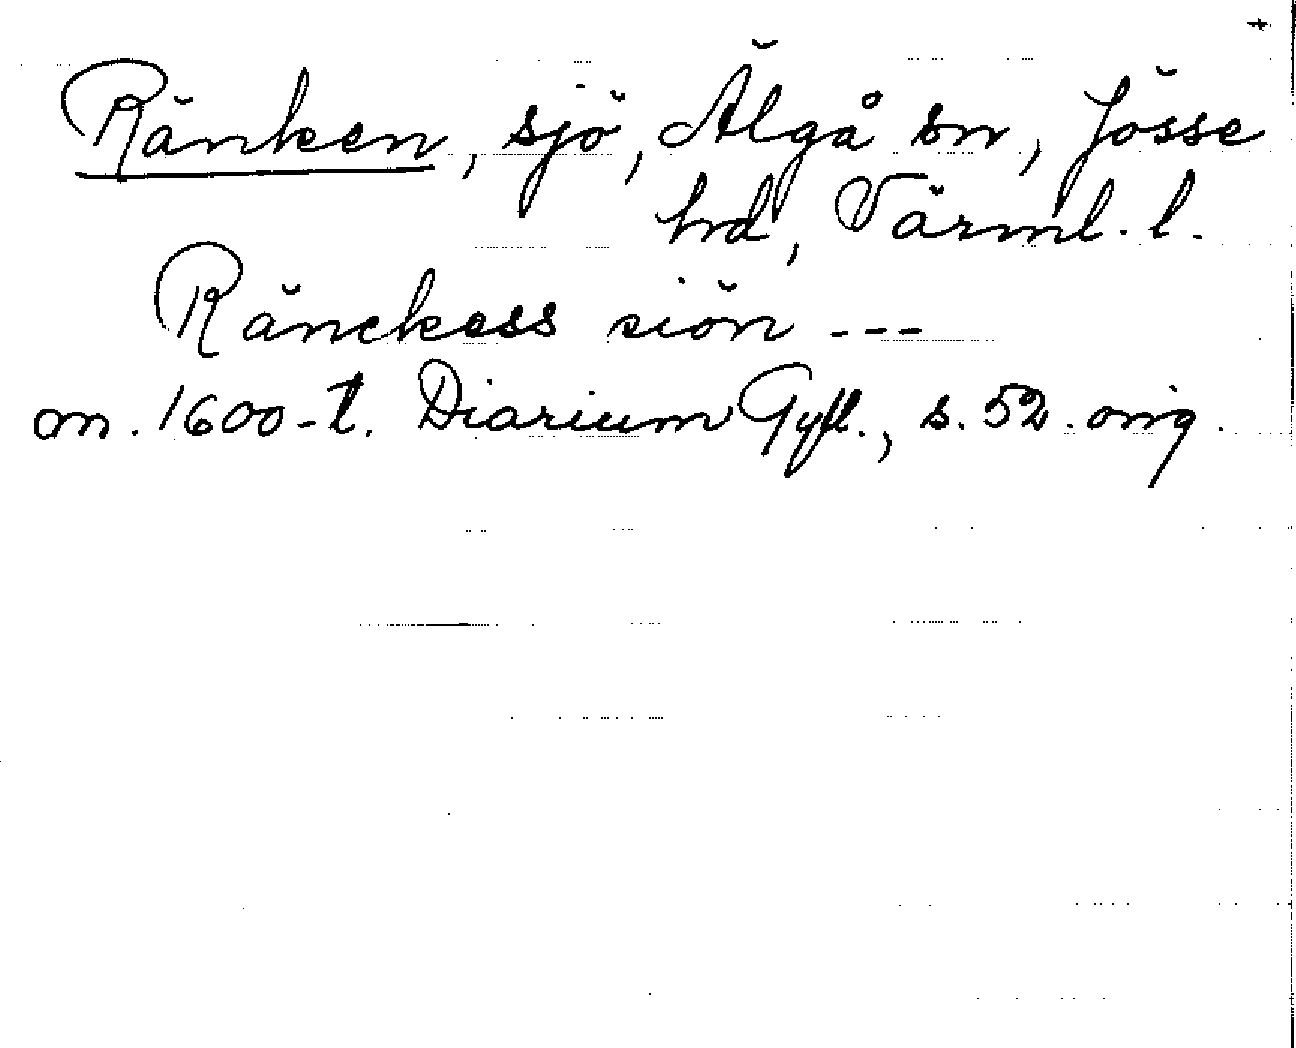 +
Ränken, sjö, Älgå sn, Jösse
hd, Värml. l.
Ränckess siön ---
m. 1600-t. Diarium Gyll., s. 52. orig.